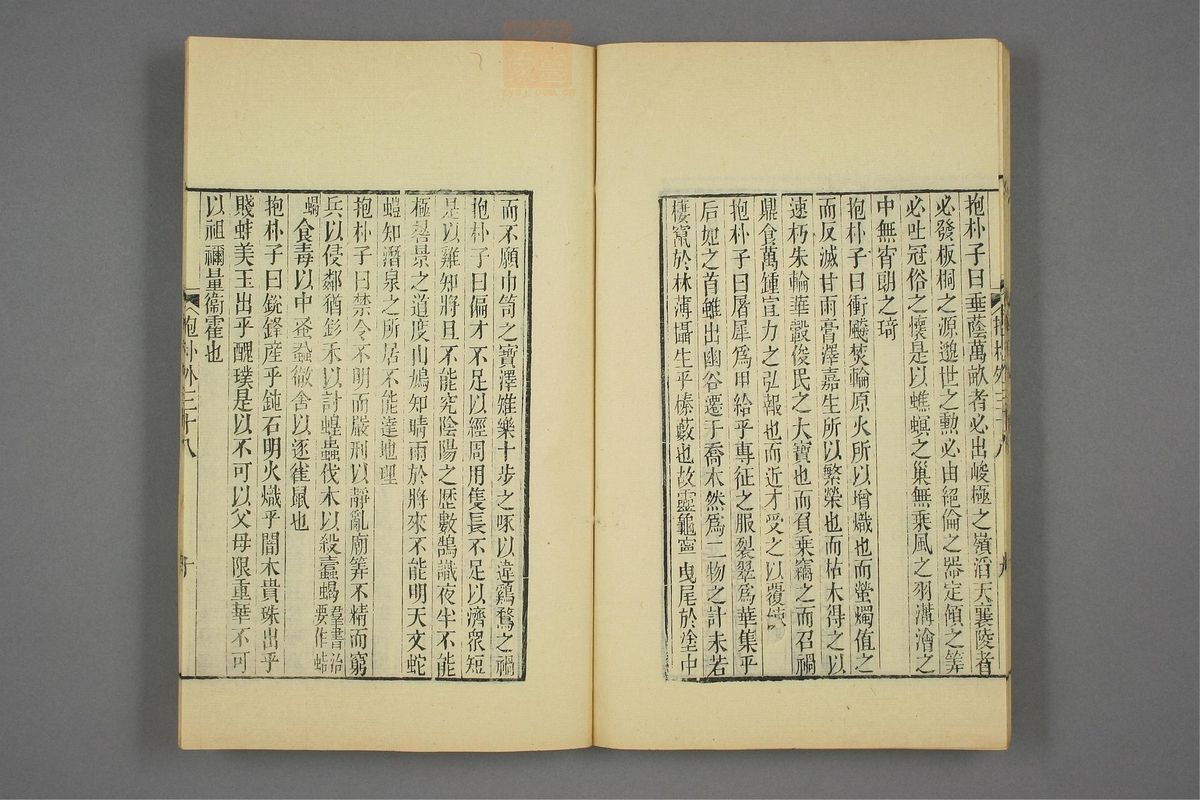 抱朴子曰垂蔭萬畝者必出峻極之嶺滔天襄陵者
必發板桐之源邈世之勳必由絕倫之器定傾之筭
必吐冠俗之懷是以蟭螟之巢無乘風之羽溝澮之
中無宵朗之琦
抱朴子曰衝飈焚輪原火所以增熾也而螢燭值之
而反滅甘雨膏澤嘉生所以繁榮也而枯木得之以
速朽朱輪華轂俊民之大寶也而負乘竊之而召禍
鼎食萬鍾宣力之弘報也而近才受之以覆餗
抱朴子曰屠犀爲甲給乎專征之服裂翠爲華集乎
后妃之首雖出幽谷遷于喬木然爲二物之計未若
棲竄於林薄攝生乎榛藪也故靈龜寧曳尾於塗中
而不願巾笥之寶澤雉樂十步之啄以違鷄鶩之禍
抱朴子曰偏才不足以經周用隻長不足以濟衆短
是以雞知將旦不能究陰陽之歷數鵠識夜半不能
極晷景之道度山鳩知晴雨於將來不能明天文蛇
螘知潛泉之所居不能達地理
抱朴子曰禁令不明而嚴刑以靜亂廟筭不精而窮
兵以侵鄰猶釤禾以討蝗蟲伐木以殺蠹蝎羣書治要作蛣
蝎食毒以中蚤蝨徹舍以逐雀鼠也
抱朴子曰銳鋒產乎鈍石明火熾乎闇木貴珠出乎
賤蚌美玉出乎醜璞是以不可以父母限重華不可
以祖禰量衞霍也
抱朴外三十八
十